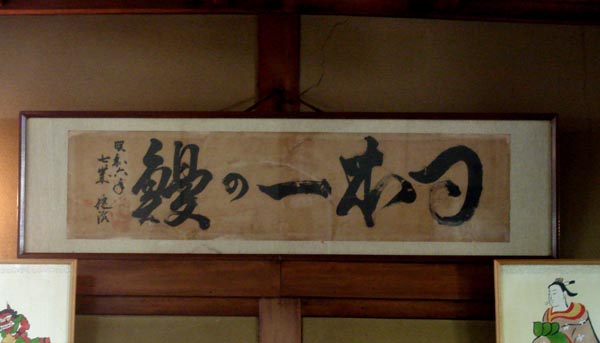 日本一の鰻
昭和六年